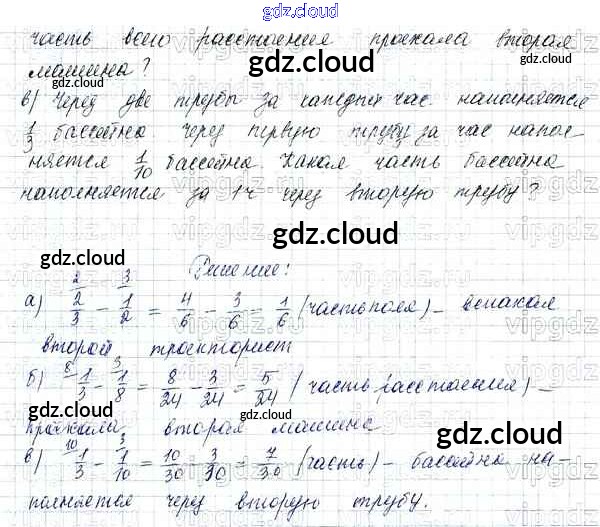 gdz.cloud
часть всего расстояния проехала вторая
машина?
в) Через две трубы за каждый час наполняется
1/3 бассейна через первую трубу за час напол-
няется 1/10 бассейна. Какая часть бассейна
наполняется за 1ч через вторую трубу?
Решение:
а) 2/3 - 1/2 = 4/6 - 3/6 = 1/6 (часть поля) - вспахал
второй тракторист
б) 1/3 - 1/8 = 8/24 - 3/24 = 5/24 (часть расстояния) -
проехала вторая машина
в) 1/3 - 1/10 = 10/30 - 3/30 = 7/30 (часть) - бассейна на-
полняется через вторую трубу.